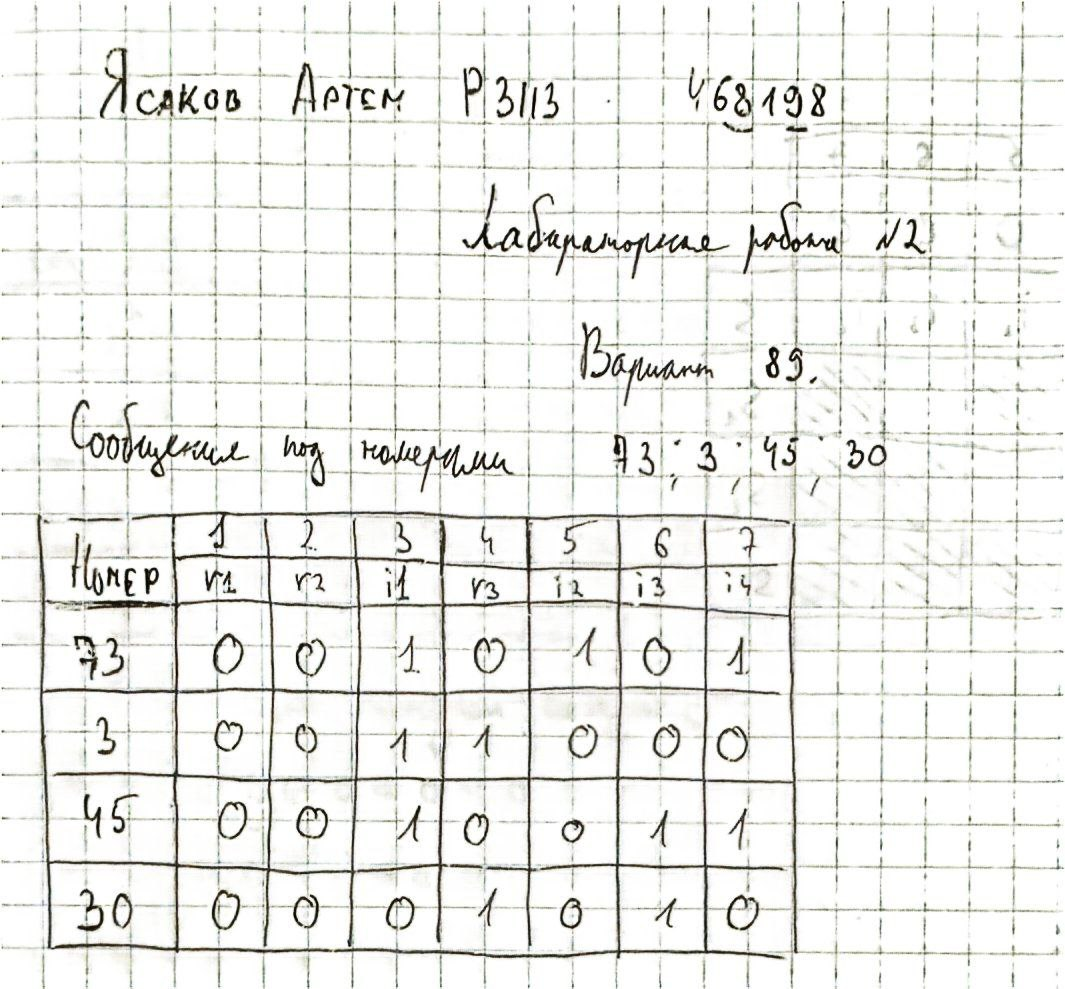 Ясаков Артем Р3113 468198
Лабораторная работа №2
Вариант 89.
Сообщения под номерами 73; 3; 45; 30
Номер 1 2 3 4 5 6 7
r1 r2 i1 r3 i2 i3 i4
73 0 0 1 0 1 0 1
3 0 0 1 1 0 0 0
45 0 0 1 0 0 1 1
30 0 0 0 1 0 1 0